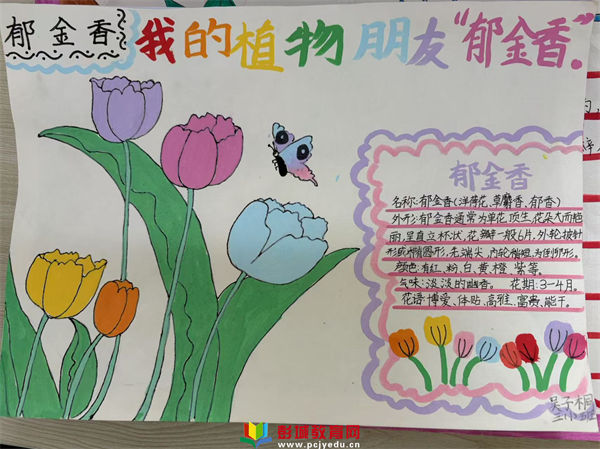 郁金香
我的植物朋友“郁金香”。
郁金香
名称:郁金香(洋荷花、草麝香、郁香)
外形:郁金香通常为单花,顶生,花朵大而艳
丽,呈直立杯状,花瓣一般6片,外轮披针
形或椭圆形,无端尖,内轮稍短,为倒卵形。
颜色:有红、粉、白、黄、橙、紫等。
气味:淡淡的幽香。 花期:3-4月。
花语:博爱、体贴、高雅、富贵、能干。
吴子桐
彭城教育网
www.pcjyedu.cn